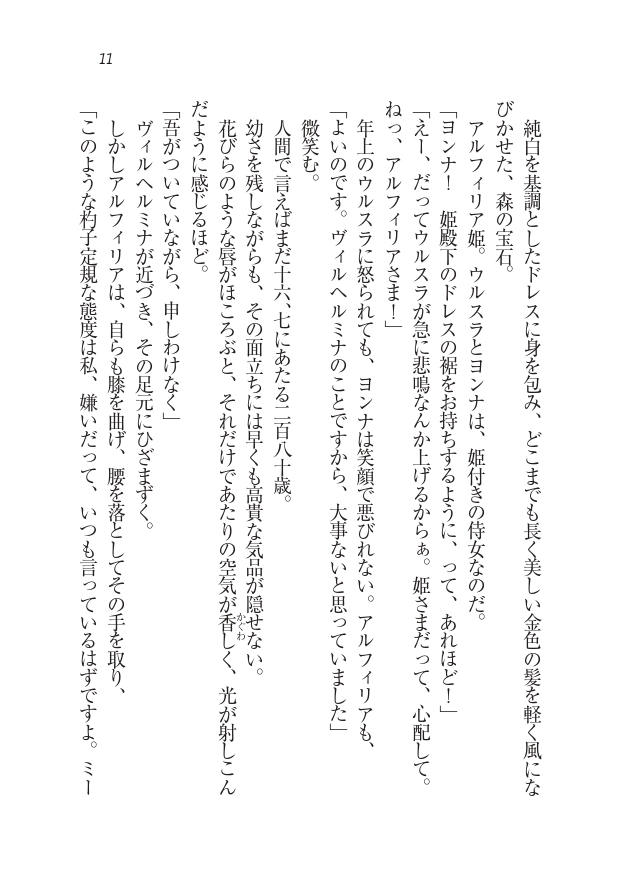 11
純白を基調としたドレスに身を包み、どこまでも長く美しい金色の髪を軽く風にな
びかせた、森の宝石。
アルフィリア姫。ウルスラとヨンナは、姫付きの侍女なのだ。
「ヨンナ！　姫殿下のドレスの裾をお持ちするように、って、あれほど！」
「えー、だってウルスラが急に悲鳴なんか上げるからぁ。姫さまだって、心配して。
ねっ、アルフィリアさま！」
年上のウルスラに怒られても、ヨンナは笑顔で悪びれない。アルフィリアも、
「よいのです。ヴィルヘルミナのことですから、大事ないと思っていました」
微笑む。
人間で言えばまだ十六、七にあたる二百八十歳。
幼さを残しながらも、その面立ちには早くも高貴な気品が隠せない。
花びらのような唇がほころぶと、それだけであたりの空気が香しく、光が射しこん
かぐわ
だように感じるほど。
「吾がついていながら、申しわけなく」
ヴィルヘルミナが近づき、その足元にひざまずく。
しかしアルフィリアは、自らも膝を曲げ、腰を落としてその手を取り、
「このような杓子定規な態度は私、嫌いだって、いつも言っているはずですよ。ミー